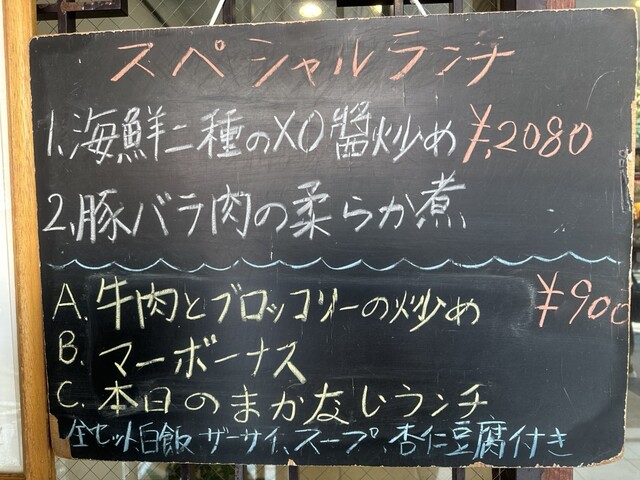 スペシャルランチ
1.海鮮二種のXO醬炒め ¥2080
2.豚バラ肉の柔らか煮
A.牛肉とブロッコリーの炒め ¥900
B.マーボーナス
C.本日のまかないランチ
全セット白飯 ザーサイ、スープ、杏仁豆腐付き